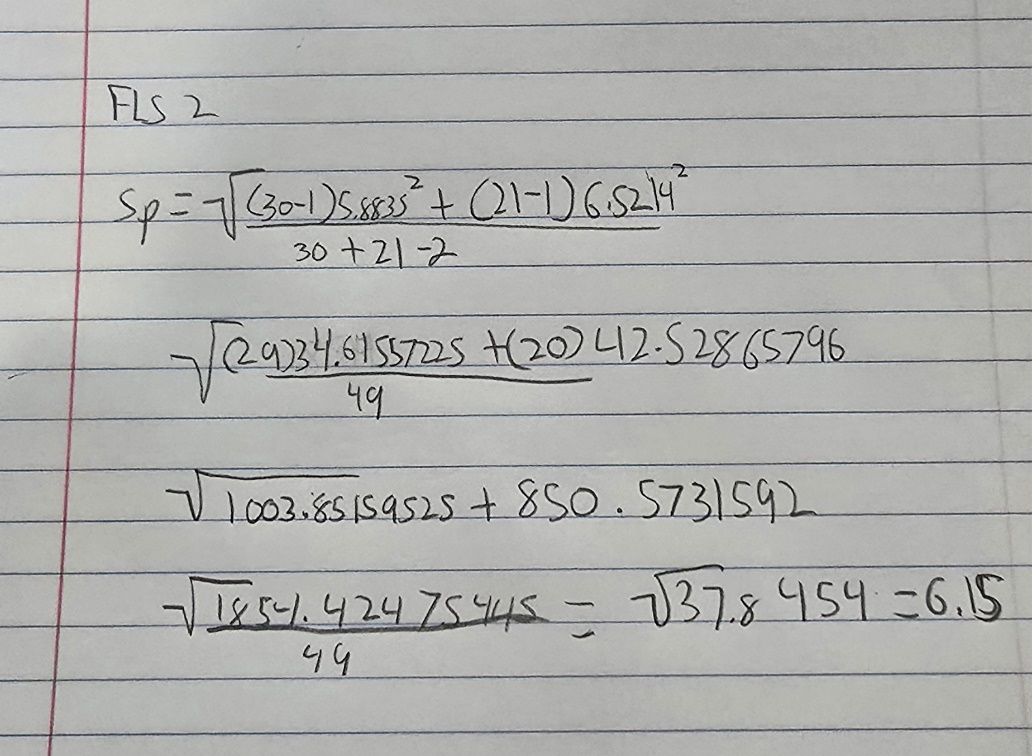 FLS 2
Sp = √(30-1)5.8835² + (21-1)6.5214²
30 + 21 - 2
√(29)34.61557225 + (20)42.52865796
49
√1003.85159525 + 850.5731592
√1854.42475445 = √37.8454 = 6.15
49